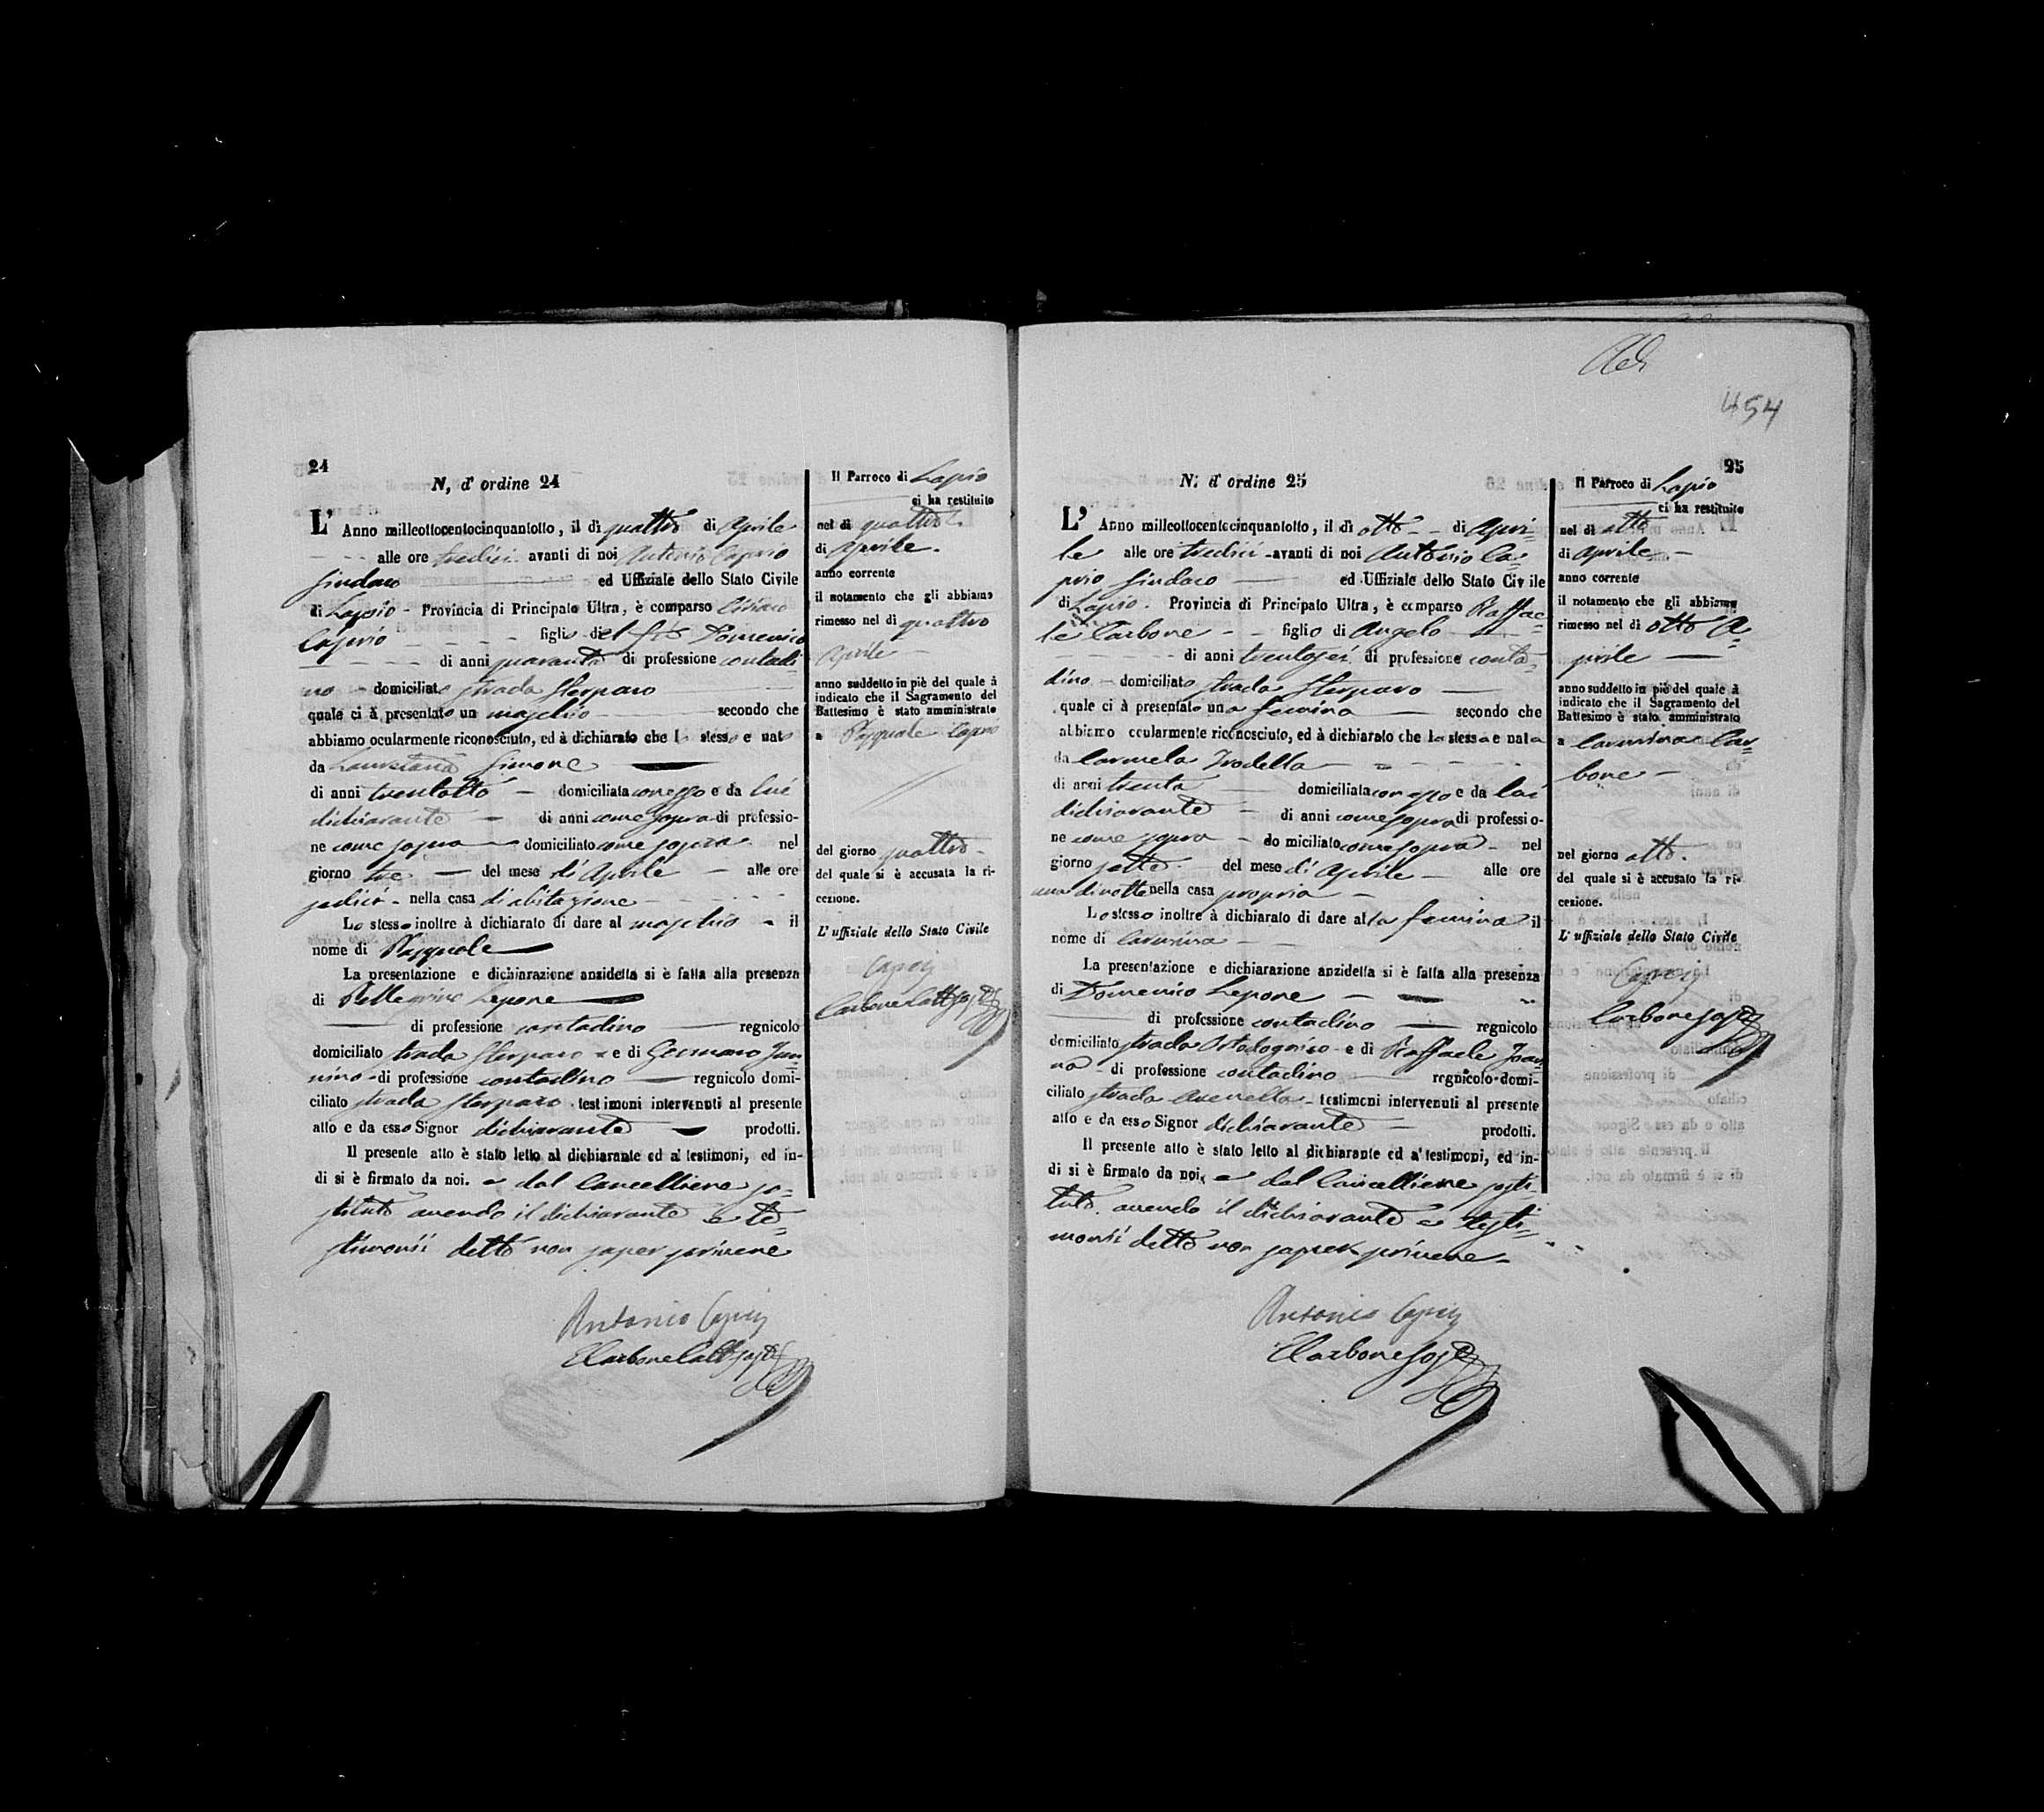 24
N, d' ordine 24
L' Anno milleottocentocinquantotto, il dì quattro di Aprile
alle ore tredici avanti di noi Antonio Caprio
Sindaco ed Uffiziale dello Stato Civile
di Lapio - Provincia di Principato Ultra, è comparso Ciriaco
Caprio figlio del fu Domenico
di anni quaranta di professione contadi
no - domiciliato strada Sterparo
quale ci à presentato un maschio secondo che
abbiamo ocularmente riconosciuto, ed à dichiarato che lo stesso e nato
da Lauretana Simone
di anni trentotto - domiciliata con esso e da lui
dichiarante - di anni come sopra di professio-
ne come sopra - domiciliato come sopra nel
giorno tre - del mese di Aprile - alle ore
sedici - nella casa di abitazione
Lo stesso inoltre à dichiarato di dare al maschio - il
nome di Pasquale
La presentazione e dichiarazione anzidetta si è fatta alla presenza
di Pellegrino Lepone
di professione contadino regnicolo
domiciliato strada Sterparo e di Germano Jan=
nino - di professione contadino regnicolo domi-
ciliato strada Sterparo testimoni intervenuti al presente
atto e da esso Signor dichiarante prodotti.
Il presente atto è stato letto al dichiarante ed a' testimoni, ed in-
di si è firmato da noi. e dal Cancelliere so-
stituto avendo il dichiarante e te=
stimonii detto non saper scrivere
Antonio Caprio
Carbone
Il Parroco di Lapio
ci ha restituito
nel dì quattro
di Aprile.
anno corrente
il notamento che gli abbiamo
rimesso nel dì quattro
Aprile
anno suddetto in piè del quale à
indicato che il Sagramento del
Battesimo è stato amministrato
a Pasquale Caprio
del giorno quattro
del quale si è accusata la ri-
cezione.
L' uffiziale dello Stato Civile
Caprio
Carbone
454
25
N: d' ordine 25
L' Anno milleottocentocinquantotto, il dì otto - di Apri=
le alle ore tredici - avanti di noi Antonio Ca=
prio Sindaco ed Uffiziale dello Stato Civile
di Lapio. Provincia di Principato Ultra, è comparso Raffae=
le Carbone - - figlio di Angelo
di anni trentasei di professione conta=
dino - domiciliato strada Sterparo
quale ci à presentato una femina secondo che
abbiamo ocularmente riconosciuto, ed à dichiarato che la stessa e nata
da Carmela Trodella
di anni trenta domiciliata con esso e da lui
dichiarante - di anni come sopra di professio-
ne come sopra - domiciliato come sopra - nel
giorno sette del mese di Aprile - alle ore
una di notte nella casa propria
Lo stesso inoltre à dichiarato di dare alla femina il
nome di Carmina
La presentazione e dichiarazione anzidetta si è fatta alla presenza
di Domenico Lepone
di professione contadino regnicolo
domiciliato strada e di Raffaele Joan=
na - di professione contadino regnicolo domi-
ciliato strada testimoni intervenuti al presente
atto e da esso Signor dichiarante prodotti.
Il presente atto è stato letto al dichiarante ed a' testimoni, ed in-
di si è firmato da noi, e dal Cancelliere sosti=
tuto avendo il dichiarante e testi=
monii detto non saper scrivere
Antonio Caprio
Carbone
Il Parroco di Lapio
ci ha restituito
nel dì otto
di Aprile
anno corrente
il notamento che gli abbiamo
rimesso nel dì otto A=
prile
anno suddetto in piè del quale à
indicato che il Sagramento del
Battesimo è stato amministrato
a Carmina Car=
bone
nel giorno otto.
del quale si è accusato la ri-
cezione.
L' uffiziale dello Stato Civile
Caprio
Carbone